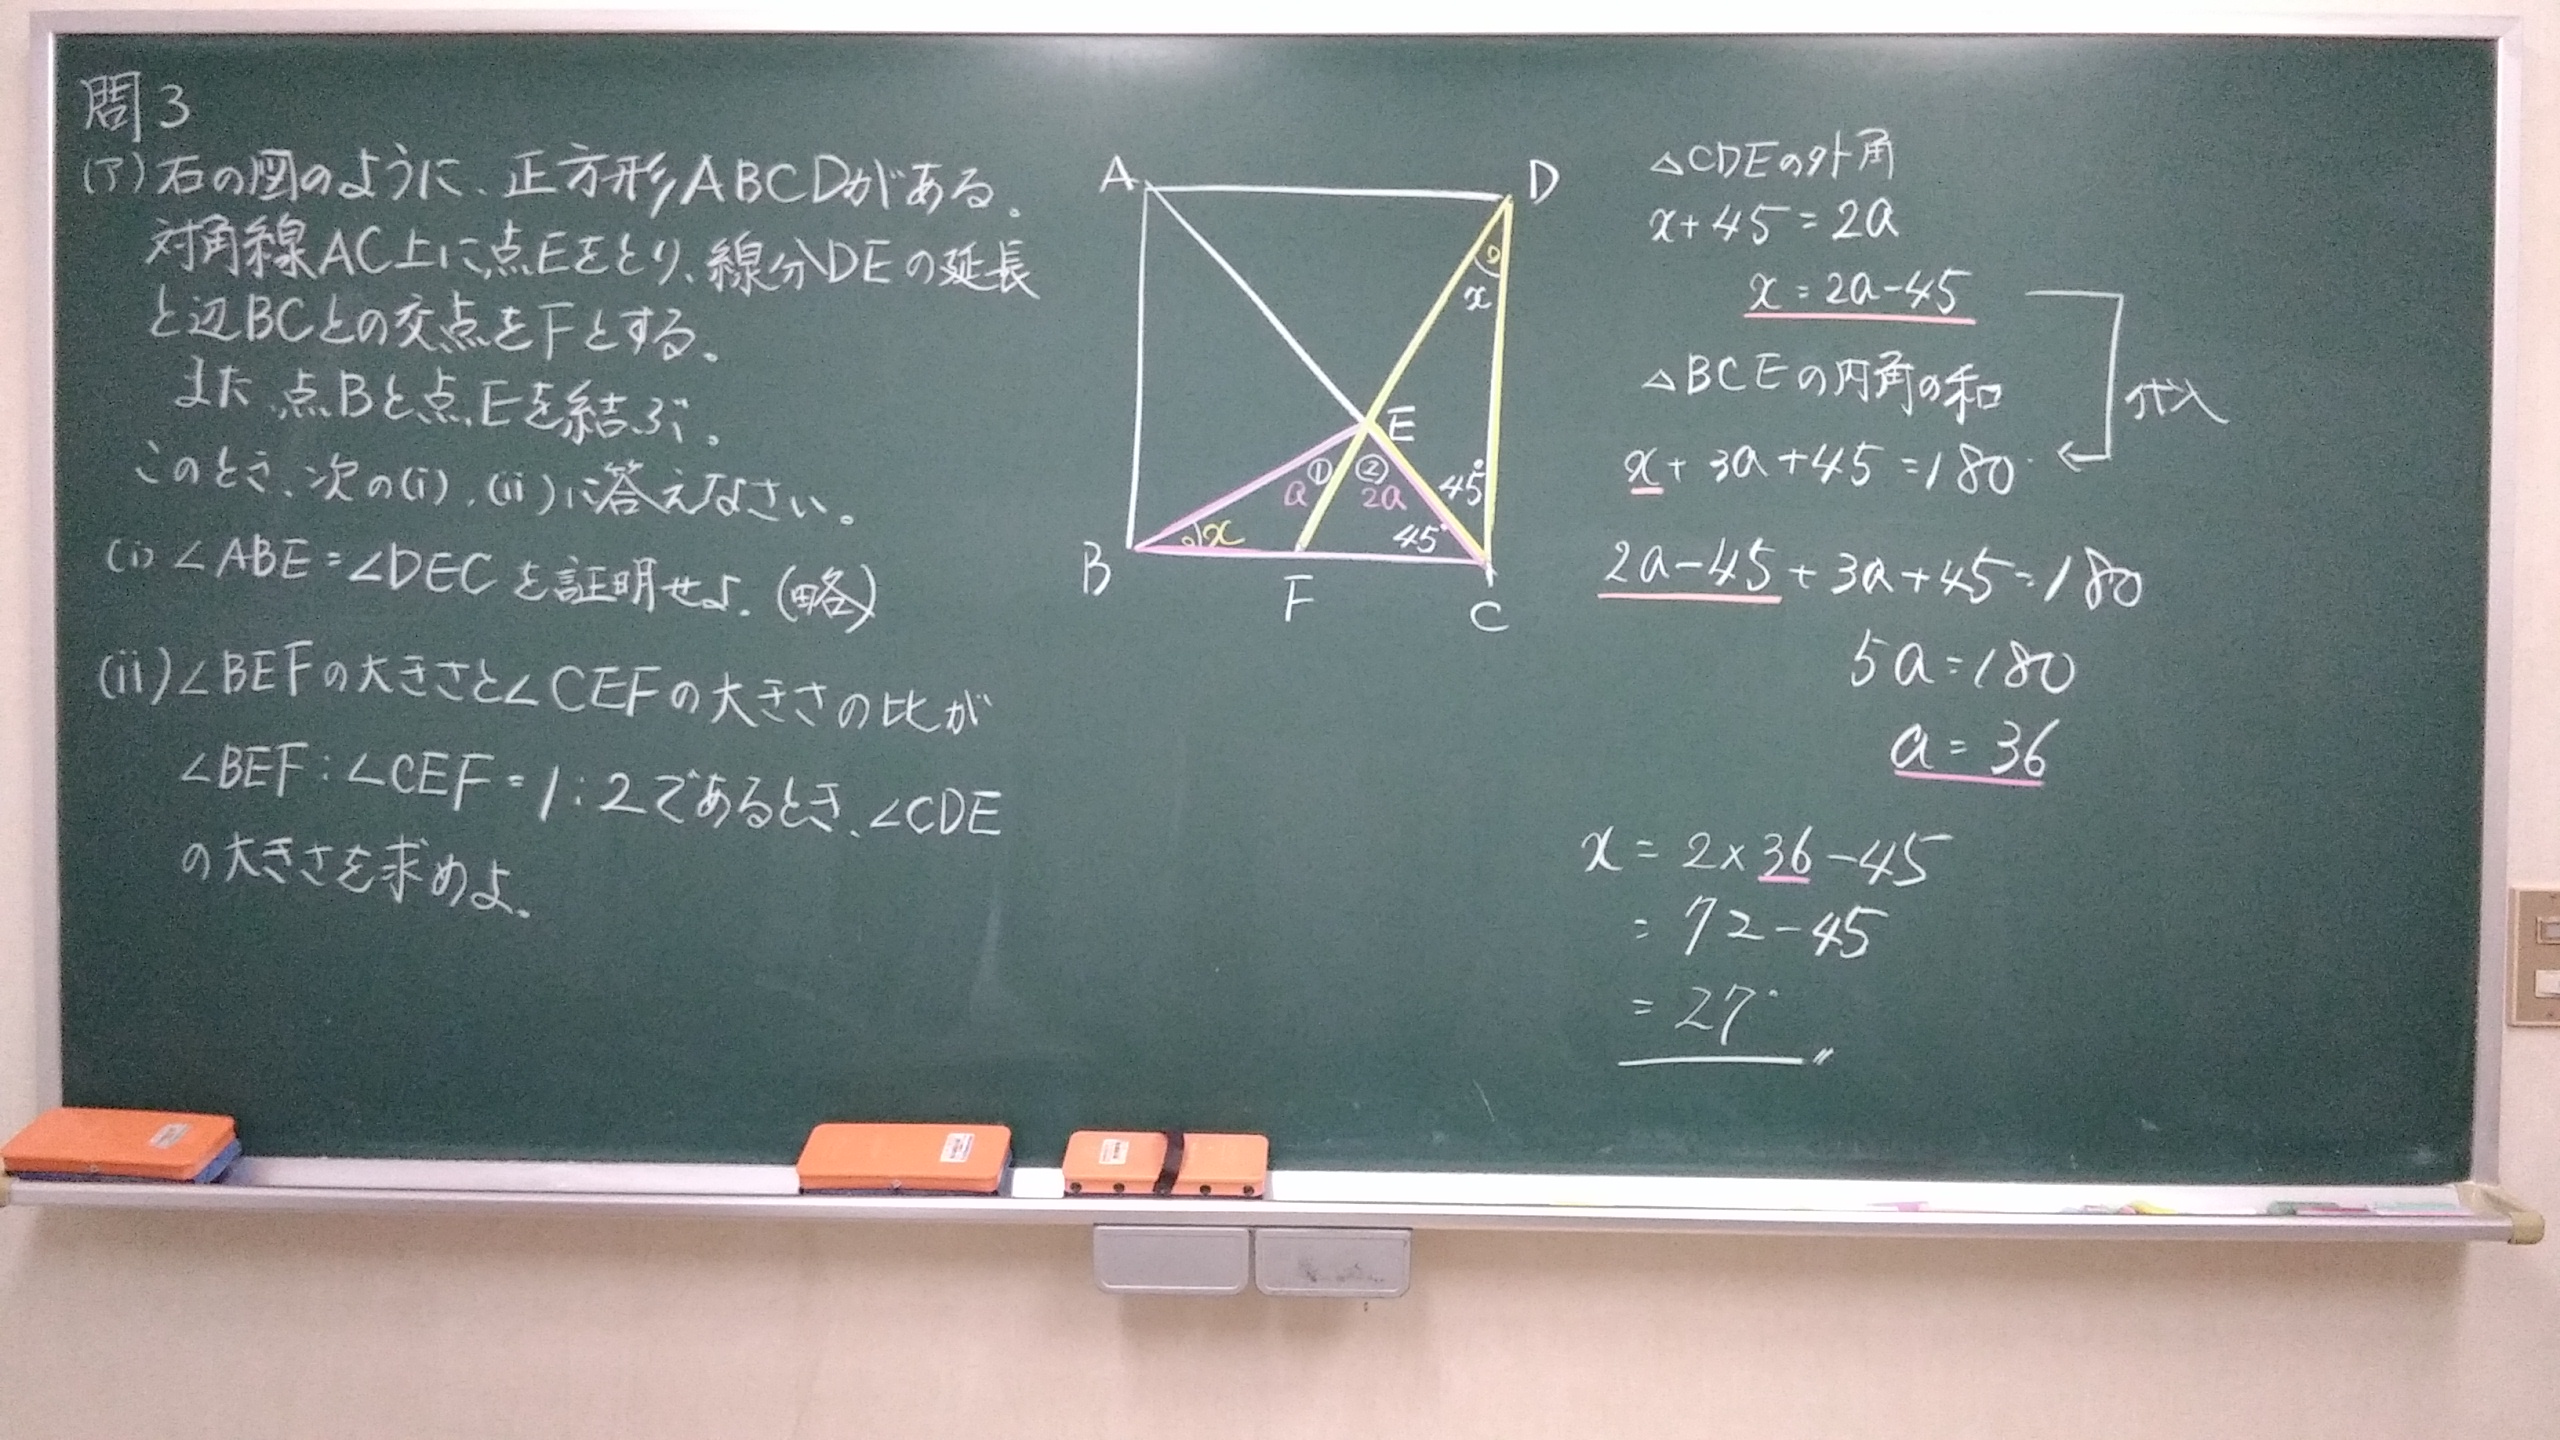 問3
(ア)右の図のように、正方形ABCDがある。
対角線AC上に点Eをとり、線分DEの延長
と辺BCとの交点をFとする。
また、点Bと点Eを結ぶ。
このとき、次の(i)，(ii)に答えなさい。
(i) ∠ABE=∠DECを証明せよ.(略)
(ii)∠BEFの大きさと∠CEFの大きさの比が
∠BEF:∠CEF=1:2であるとき、∠CDE
の大きさを求めよ。
A
D
x
E
① ②
a 2a
45°
x
45°
B
F
C
△CDEの外角
x+45=2a
x=2a-45
△BCEの内角の和
代入
x+3a+45=180
2a-45+3a+45=180
5a=180
a=36
x=2×36-45
=72-45
=27°